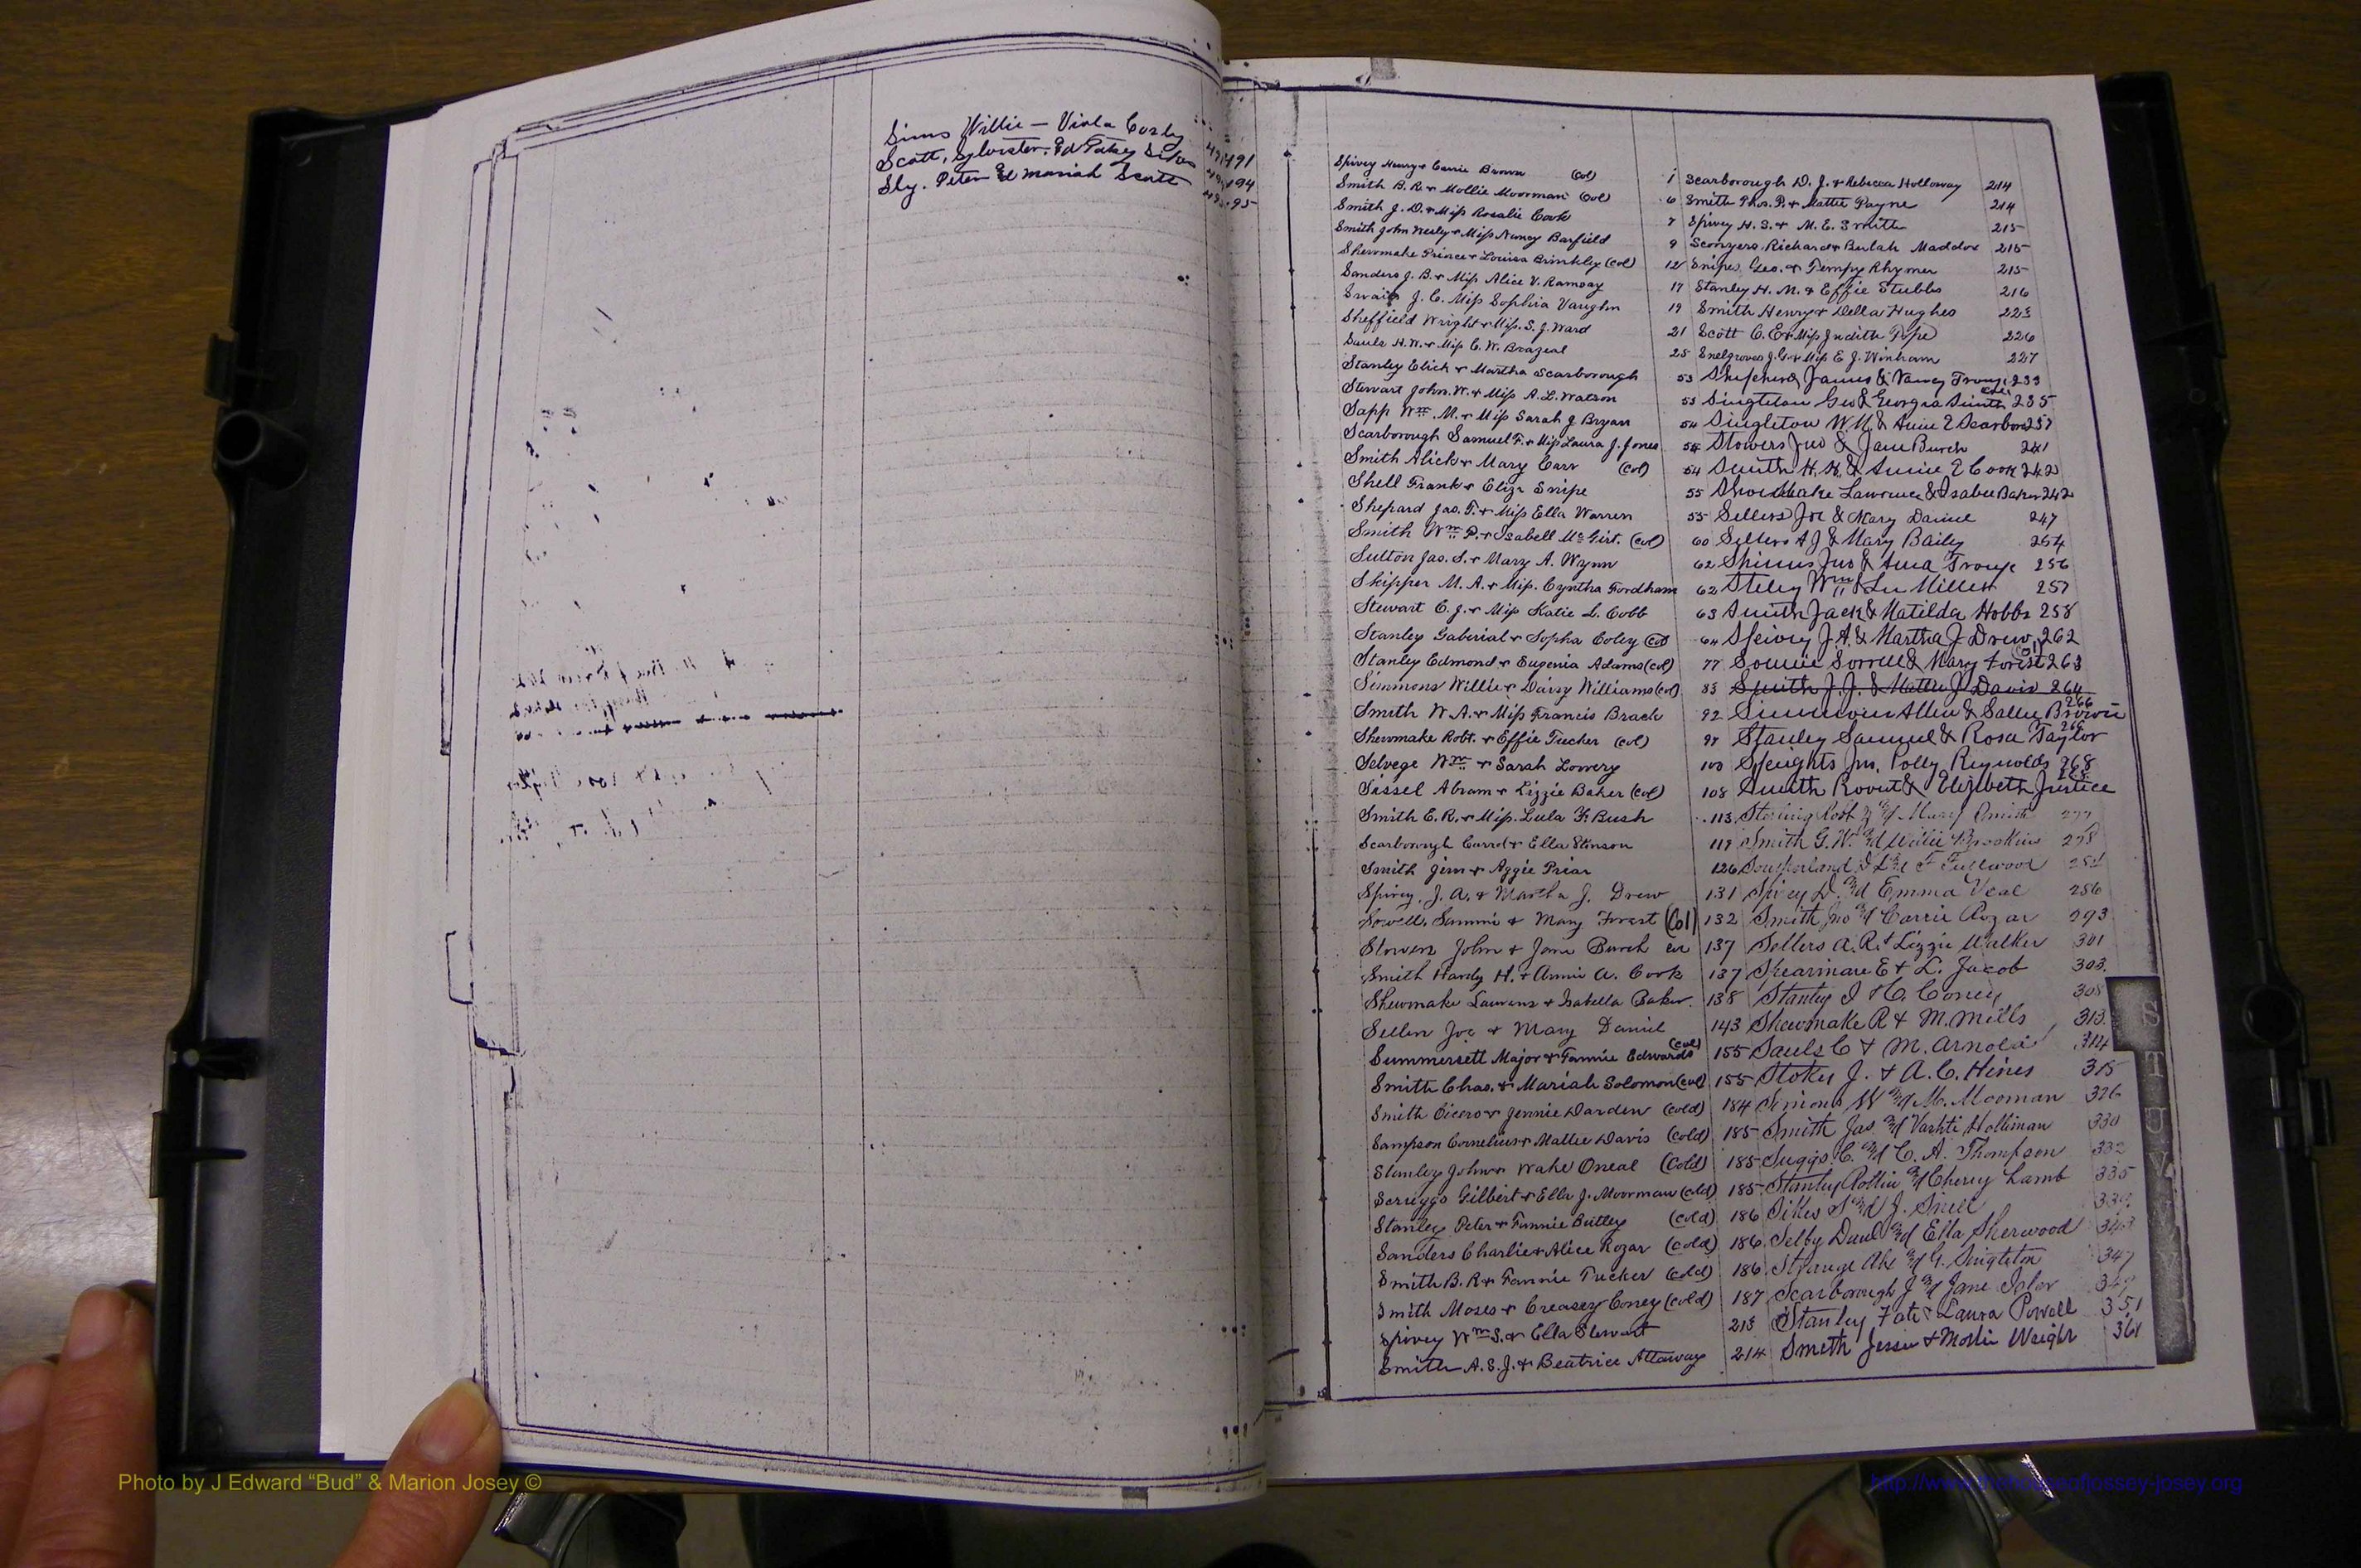 Sims Willie — Viola Cozby 491
Scott, Sylvester. Ed Patsy 494
Sly. Peter Ed Mariah Scott 495
Spivey Henry & Carrie Brown (Col) 1
Smith B. R. & Mollie Moorman (Col) 6
Smith J. D. & Miss Rosalie Cook 7
Smith John Wesly & Miss Nancy Barfield 9
Shewmake Prince & Louisa Brinkley (Col) 12
Sanders J. B. & Miss Alice V. Ramsay 17
Swain J. C. Miss Sophia Vaughn 19
Sheffield Wright & Miss. S. J. Ward 21
Sauls H. W. & Miss C. W. Brazeal 25
Stanley Elick & Martha Scarborough 53
Stewart John. W. & Miss A. L. Watson 53
Sapp Wm. M. & Miss Sarah J Bryan 54
Scarborough Samuel F. & Miss Laura J. Jones 54
Smith Alick & Mary Carr (Col) 54
Shell Frank & Eliza Snipe 55
Shepard Jas. T. & Miss Ella Warren 55
Smith Wm. P. & Isabell McGirt. (Col) 60
Sutton Jas. S. & Mary A. Wynn 62
Skipper M. A. & Miss. Cyntha Fordham 62
Stewart C. J. & Miss Katie L. Cobb 63
Stanley Gaberial & Sopha Coley (Col) 64
Stanley Edmond & Eugenia Adams (Col) 77
Simmons Willie & Daisy Williams (Col) 83
Smith W. A. & Miss Francis Brack 92
Shewmake Robt. & Effie Tucker (Col) 97
Selvege Wm. & Sarah Lowery 103
Sissel Abram & Lizzie Baker (Col) 108
Smith E. R. & Miss. Lula F. Bush 113
Scarborough Carrol & Ella Stinson 117
Smith Jim & Aggie Prior 126
Spivey. J. A. & Martha J. Drew 131
Sowell. Sammi & Mary Forest (Col) 132
Stowers John & Jane Burch Col 137
Smith Hardy H. & Annie A. Cook 137
Shewmake Laurens & Isabella Baker. 138
Sellers Joe & Mary Daniel 143
Summersett Major & Fannie Edwards (Col) 155
Smith Chas. & Mariah Solomon (Col) 155
Smith Cicero & Jennie Darden (Cold) 184
Sampson Cornelius & Mallie Davis (Cold) 185
Stanley John & Wake Oneal (Cold) 185
Scruggs Gilbert & Ella J. Moorman (Cold) 185
Stanley Peter & Fannie Butley (Cold) 186
Sanders Charlie & Alice Rozar (Cold) 186
Smith B. R & Fannie Tucker (Cold) 186
Smith Moses & Creasey Coney (Cold) 187
Spivey Wm S. & Ella Stewart 213
Smith A. S. J. & Beatrice Attaway 214
Scarborough D. J. & Rebecca Holloway 214
Smith Thos. P. & Mattie Payne 214
Spivey H. S. & M. E. Smith 215
Sconyers Richard & Bulah Maddox 215
Snipes Geo. & Tempy Rhymer 215
Stanley H. M. & Effie Stubbs 216
Smith Henry & Della Hughes 223
Scott C. E & Miss Judith Pope 226
Snelgroves J. G. & Miss E J. Winham 227
Shepherd James & Nancy Troup 233
Singleton Geo & Georgia Smith (Col) 235
Singleton W. M. & Annie E Scarboro 237
Stowers Jno & Jane Burch 241
Smith H. H. & Annie E Cook 242
Shewmake Lawrence & Isabel Baker 242
Sellers Joe & Mary Daniel 247
Sellers A J & Mary Baily 254
Shinus Jno & Anna Troup 256
Steley Wm & Lu Miller 257
Smith Jack & Matilda Hobbs 258
Speivey J. A. & Martha J Drew 262
Sonnie Sorrell & Mary Forest (Col) 263
Smith J. J. & Mattie J Davis 264
Simmons Allen & Sallie Brown 266
Stanley Samuel & Rosa Taylor
Speights Jno, Polly Reynolds 268
Smith Rovert & Elizibeth Justice
Sterling Robt & Mary Smith 277
Smith G. W. and Willie Brookins 278
Southerland and F Fullwood
Spivey D. and Emma Veal 286
Smith Jno and Carrie Rozar 293
Sellers A. R. & Lizzie Walker 301
Spearman E & L. Jacob 303.
Stanley J H. Coney 308
Shewmake R & M. Mills 313.
Sauls C & M. Arnold 314
Stokes J. & A. C. Hines 315
Simons W and M. Mooman 326
Smith Jas and Vashti Holliman 330
Suggs C. and C. A. Thompson 332
Stanley Rollin and Cherry Lamb 335
Sikes S and J. Snell 339.
Selby Dave and Ella Sherwood 343
Strange Abe and G. Singleton 347
Scarborough J and Jane Isler 349
Stanley Fate & Laura Powell 351
Smith Jessie & Mollie Wright 361
S
T
U
V
Photo by J Edward “Bud” & Marion Josey ©
http://www.thehouseofjossey-josey.org